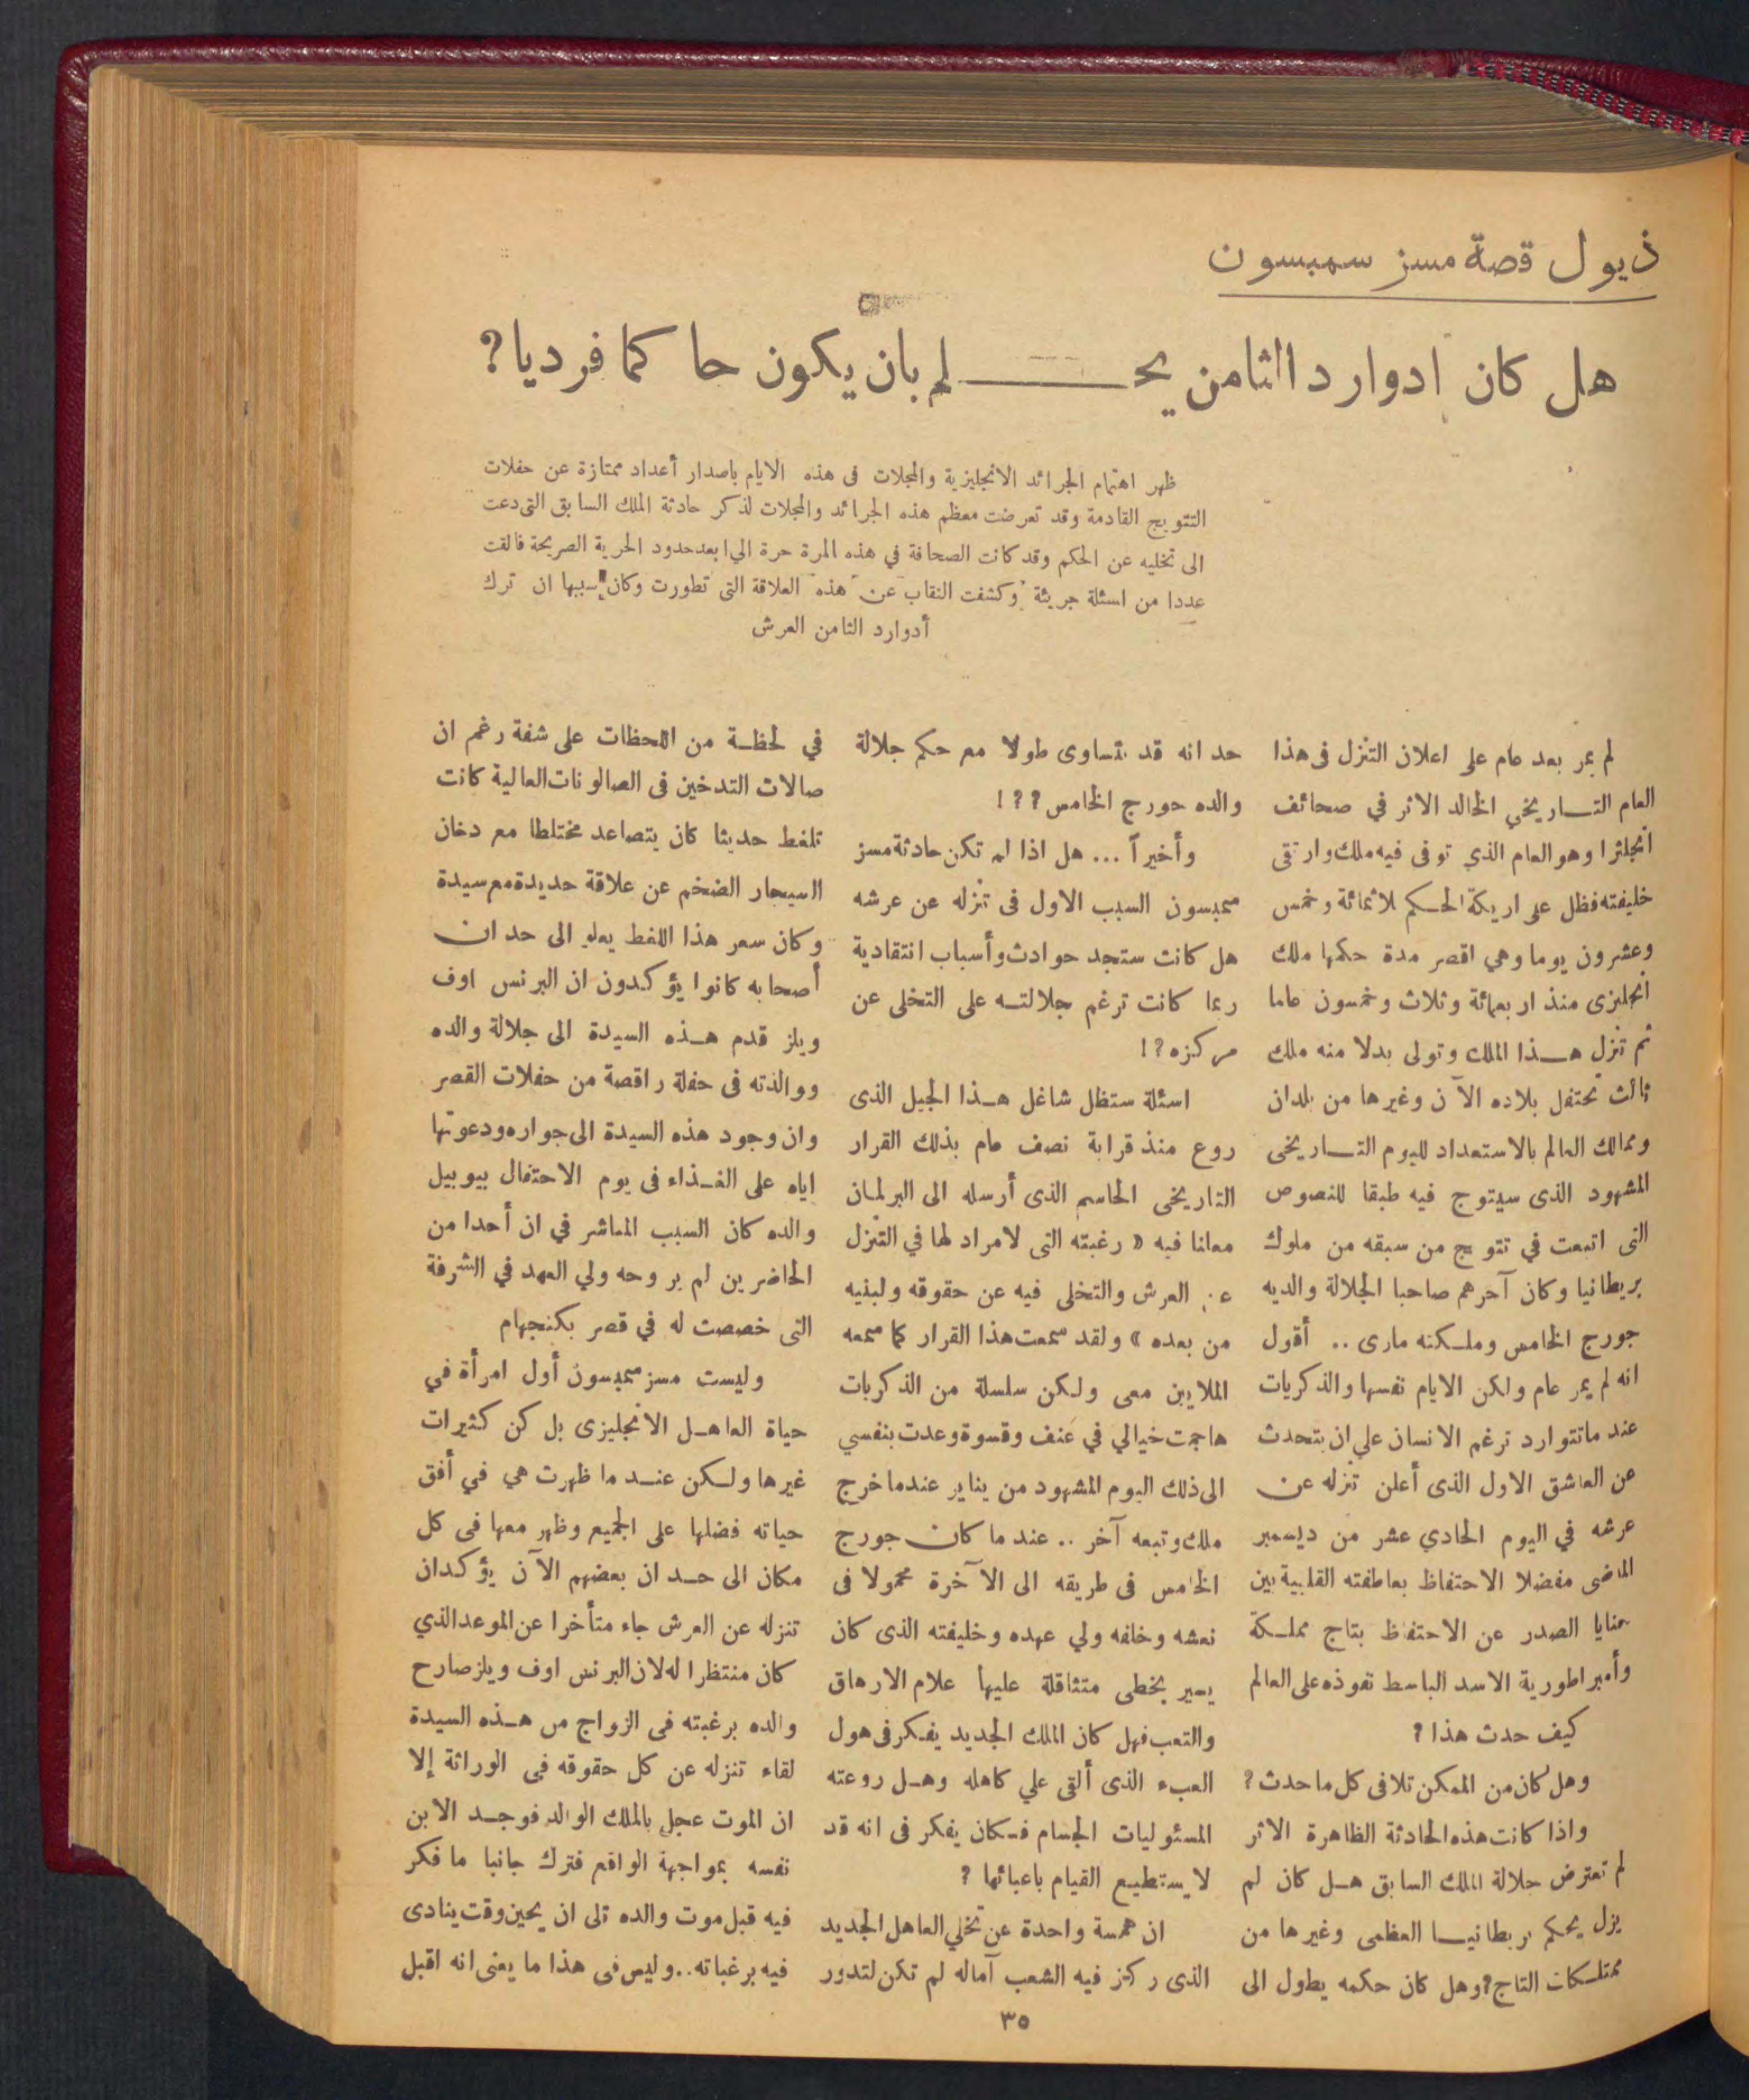 ذيول قصة مسز سمبسون
هل كان ادوارد الثامن يحـــــلم بان يكون حاكما فرديا؟
ظهر اهتمام الجرائد الانجليزية والمجلات فى هذه الايام باصدار أعداد ممتازة عن حفلات
التتويج القادمة وقد تعرضت معظم هذه الجرائد والمجلات لذكر حادثة الملك السابق التى دعت
الى تخليه عن الحكم وقد كانت الصحافة في هذه المرة حرة الي ابعد حدود الحرية الصريحة فالقت
عددا من اسئلة جريئة وكشفت النقاب عن هذه العلاقة التى تطورت وكان سببها ان ترك
أدوارد الثامن العرش
لم يمر بعد عام على اعلان التنزل فى هذا
العام التـاريخي الخالد الاثر في صحائف
انجلترا وهو العام الذي توفى فيه ملك وارتقى
خليفته فظل على اريكة الحـكم ثلاثمائة وخمس
وعشرون يوما وهي اقصر مدة حكمها ملك
انجليزى منذ اربعمائة وثلاث وخمسون عاما
ثم تنزل هـذا الملك وتولى بدلا منه ملك
ثالث تحتفل بلاده الآن وغيرها من بلدان
وممالك العالم بالاستعداد لليوم التـاريخى
المشهود الذى سيتوج فيه طبقا للنصوص
التى اتبعت في تتويج من سبقه من ملوك
بريطانيا وكان آخرهم صاحبا الجلالة والديه
جورج الخامس وملـكته مارى .. أقول
انه لم يمر عام ولكن الايام نفسها والذكريات
عند ماتتوارد ترغم الانسان علي ان يتحدث
عن العاشق الاول الذى أعلن تنزله عن
عرشه في اليوم الحادي عشر من ديسمبر
الماضى مفضلا الاحتفاظ بعاطفته القلبية بين
حنايا الصدر عن الاحتفاظ بتاج مملـكة
وأمبراطورية الاسد الباسط نفوذه على العالم
كيف حدث هذا ؟
وهل كان من الممكن تلافى كل ما حدث ؟
واذا كانت هذه الحادثة الظاهرة الاثر
لم تعترض جلالة الملك السابق هـل كان لم
يزل يحكم بريطانيـا العظمى وغيرها من
ممتلـكات التاج؟ وهل كان حكمه يطول الى
حد انه قد يتساوى طولا مع حكم جلالة
والده جورج الخامس ؟ ؟ !
وأخيراً ... هل اذا لم تكن حادثة مسز
سمبسون السبب الاول فى تنزله عن عرشه
هل كانت ستجد حوادث وأسباب انتقادية
ربما كانت ترغم جلالتـه على التخلى عن
مركزه ؟ !
اسئلة ستظل شاغل هـذا الجيل الذى
روع منذ قرابة نصف عام بذلك القرار
التاريخى الحاسم الذى أرسله الى البرلمان
معلنا فيه « رغبته التى لامراد لها في التنزل
عن العرش والتخلى فيه عن حقوقه ولبنيه
من بعده » ولقد سمعت هذا القرار كما سمعه
الملايين معى ولـكن سلسلة من الذكريات
هاجمت خيالي في عنف وقسوة وعدت بنفسي
الى ذلك اليوم المشهود من يناير عندما خرج
ملك وتبعه آخر .. عند ما كان جورج
الخامس فى طريقه الى الآخرة محمولا فى
نعشه وخلفه ولي عهده وخليفته الذى كان
يسير بخطى متثاقلة عليها علام الارهاق
والتعب فهل كان الملك الجديد يفـكر فى هول
العبء الذى ألقى علي كاهله وهـل روعته
المسئوليات الجسام فـكان يفكر فى انه قد
لا يستطيـع القيام باعبائها ؟
ان همسة واحدة عن تخلي العاهل الجديد
الذى ركز فيه الشعب آماله لم تكن لتدور
في لحظـة من اللحظات على شفة رغم ان
صالات التدخين فى الصالونات العالية كانت
تلغط حديثا كان يتصاعد مختلطا مع دخان
السيجار الضخم عن علاقة جديدة مع سيدة
وكان سعر هذا اللغط يعلو الى حد ان
أصحابه كانوا يؤكدون ان البرنس اوف
ويلز قدم هـذه السيدة الى جلالة والده
ووالدته فى حفلة راقصة من حفلات القصر
وان وجود هذه السيدة الى جواره ودعوتها
اياه على الغـذاء فى يوم الاحتفال بيوبيل
والده كان السبب المباشر في ان أحدا من
الحاضرين لم ير وجه ولي العهد في الشرفة
التى خصصت له في قصر بكنجهام
وليست مسز سمبسون أول امرأة في
حياة العاهـل الانجليزى بل كن كثيرات
غيرها ولـكن عنـد ما ظهرت هي في أفق
حياته فضلها على الجميع وظهر معها فى كل
مكان الى حـد ان بعضهم الآن يؤكدان
تنزله عن العرش جاء متأخرا عن الموعد الذي
كان منتظرا له لان البرنس اوف ويلز صارح
والده برغبته فى الزواج من هـذه السيدة
لقاء تنزله عن كل حقوقه فى الوراثة إلا
ان الموت عجل بالملك الوالد فوجـد الابن
نفسه بمواجهة الواقع فترك جانبا ما فكر
فيه قبل موت والده الى ان يحين وقت ينادى
فيه برغباته .. وليس فى هذا ما يعنى انه اقبل
٣٥